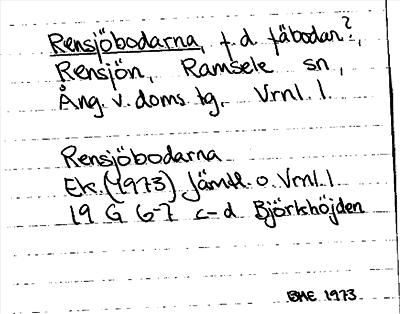 Rensjöbodarna, f.d fäbodar?,
Rensjön, Ramsele sn,
Ång. v. doms. tg. Vrnl. l.
Rensjöbodarna
Ek. (1973) Jämtl. o. Vrnl. l
19 G 6-7 c-d Björkhöjden
BME 1973